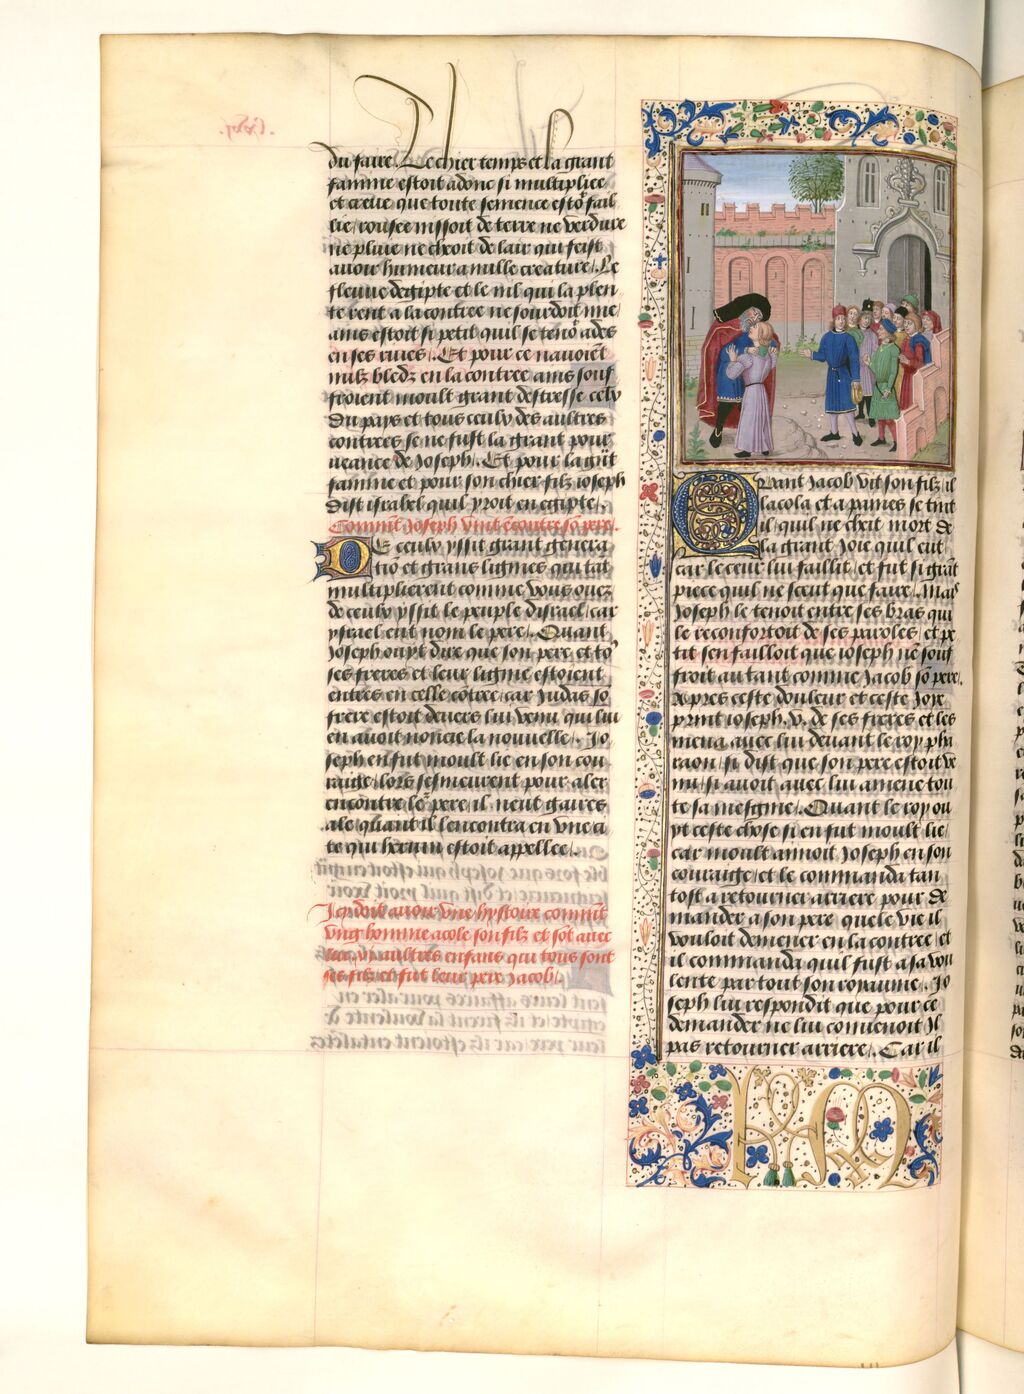 du faire. Le chier temps et la grant
famine estoit adonc si multipliee
et creue que toute semence estoit fail
lie / rousee nissoit de terre ne verdure
ne pluie ne cheoit de lair qui feist
auoir humeur a nulle creature / Le
fleuue degipte et le nil qui la plen
te rent a la contree ne sourdoit
ains estoit si petit quil se tenoit ades
en ses riues / Et pour ce nauoient
nulz bledz en la contree ains souf
froient moult grant destresse ceulx
du pays et tous ceulx des aultres
contrees se ne fust la grant pour
ueance de Joseph / Et pour la grant
famine et pour son chier filz ioseph
dist israhel quil yroit en egipte /
Comment Joseph vint encontre son pere /
De ceulx yssit grant genera
tion et grans lignies qui tant
multiplierent comme vous ouez
de ceulx yssit le peuple disrael / car
ysrael eut nom le pere / Quant
Joseph oyt dire que son pere et tous
ses freres et leur lignie estoient
entres en celle contree / car Judas son
frere estoit deuers lui venu qui lui
en auoit noncie la nouuelle / Jo
seph en fut moult lie en son cou
raige / lors sesmeurent pour aler
encontre le pere il neut gaires
ale quant il lencontra en vne ci
te qui herum estoit appellee /
Icy doit auoir vne hystoire comment
vng homme acole son filz et sont auec
lui .vi. aultres enfans qui tous sont
ses filz et fut leur pere Jacob /
Quant Jacob vit son filz il
lacola et a paines se tint
il / quil ne cheit mort de
la grant Joie quil eut
car le ceur lui faillit / et fut si grant
piece quil ne sceut que faire / Mais
Joseph le tenoit entre ses bras qui
le reconfortoit de ses paroles / et pe
tit sen failloit que ioseph ne souf
froit autant comme Jacob son pere /
Apres ceste douleur et ceste Joye
print ioseph .v. de ses freres et les
mena auec lui deuant le roy pha
raon / si dist que son pere estoit ve
nu / si auoit auec lui amene tou
te sa mesgnie / Quant le roy ou
yt ceste chose si en fut moult lie /
car moult amoit Joseph en son
couraige / et le commanda tan
tost a retourner arriere pour de
mander a son pere quele vie il
vouloit demener en la contree / et
il commanda quil fust a sa vou
lente par tout son royaume / Jo
seph lui respondit que pour ce
demander ne lui conuenoit Il
pas retourner arriere / Car il